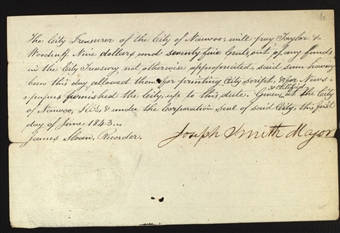 The City Treasurer of the City of Nauvoo will pay Taylor &
Woodruff Nine dollars and seventy five Cents, out of any funds
in the City Treasury not otherwise appropriated, said sum having
been this day allowed them for printing City script, & for News-
papers furnished the City, up to this date. Given at the City
of Nauvoo, & under the Corporation Seal of said City, this first
day of June 1843.
James Sloan, Recorder. Joseph Smith Mayor